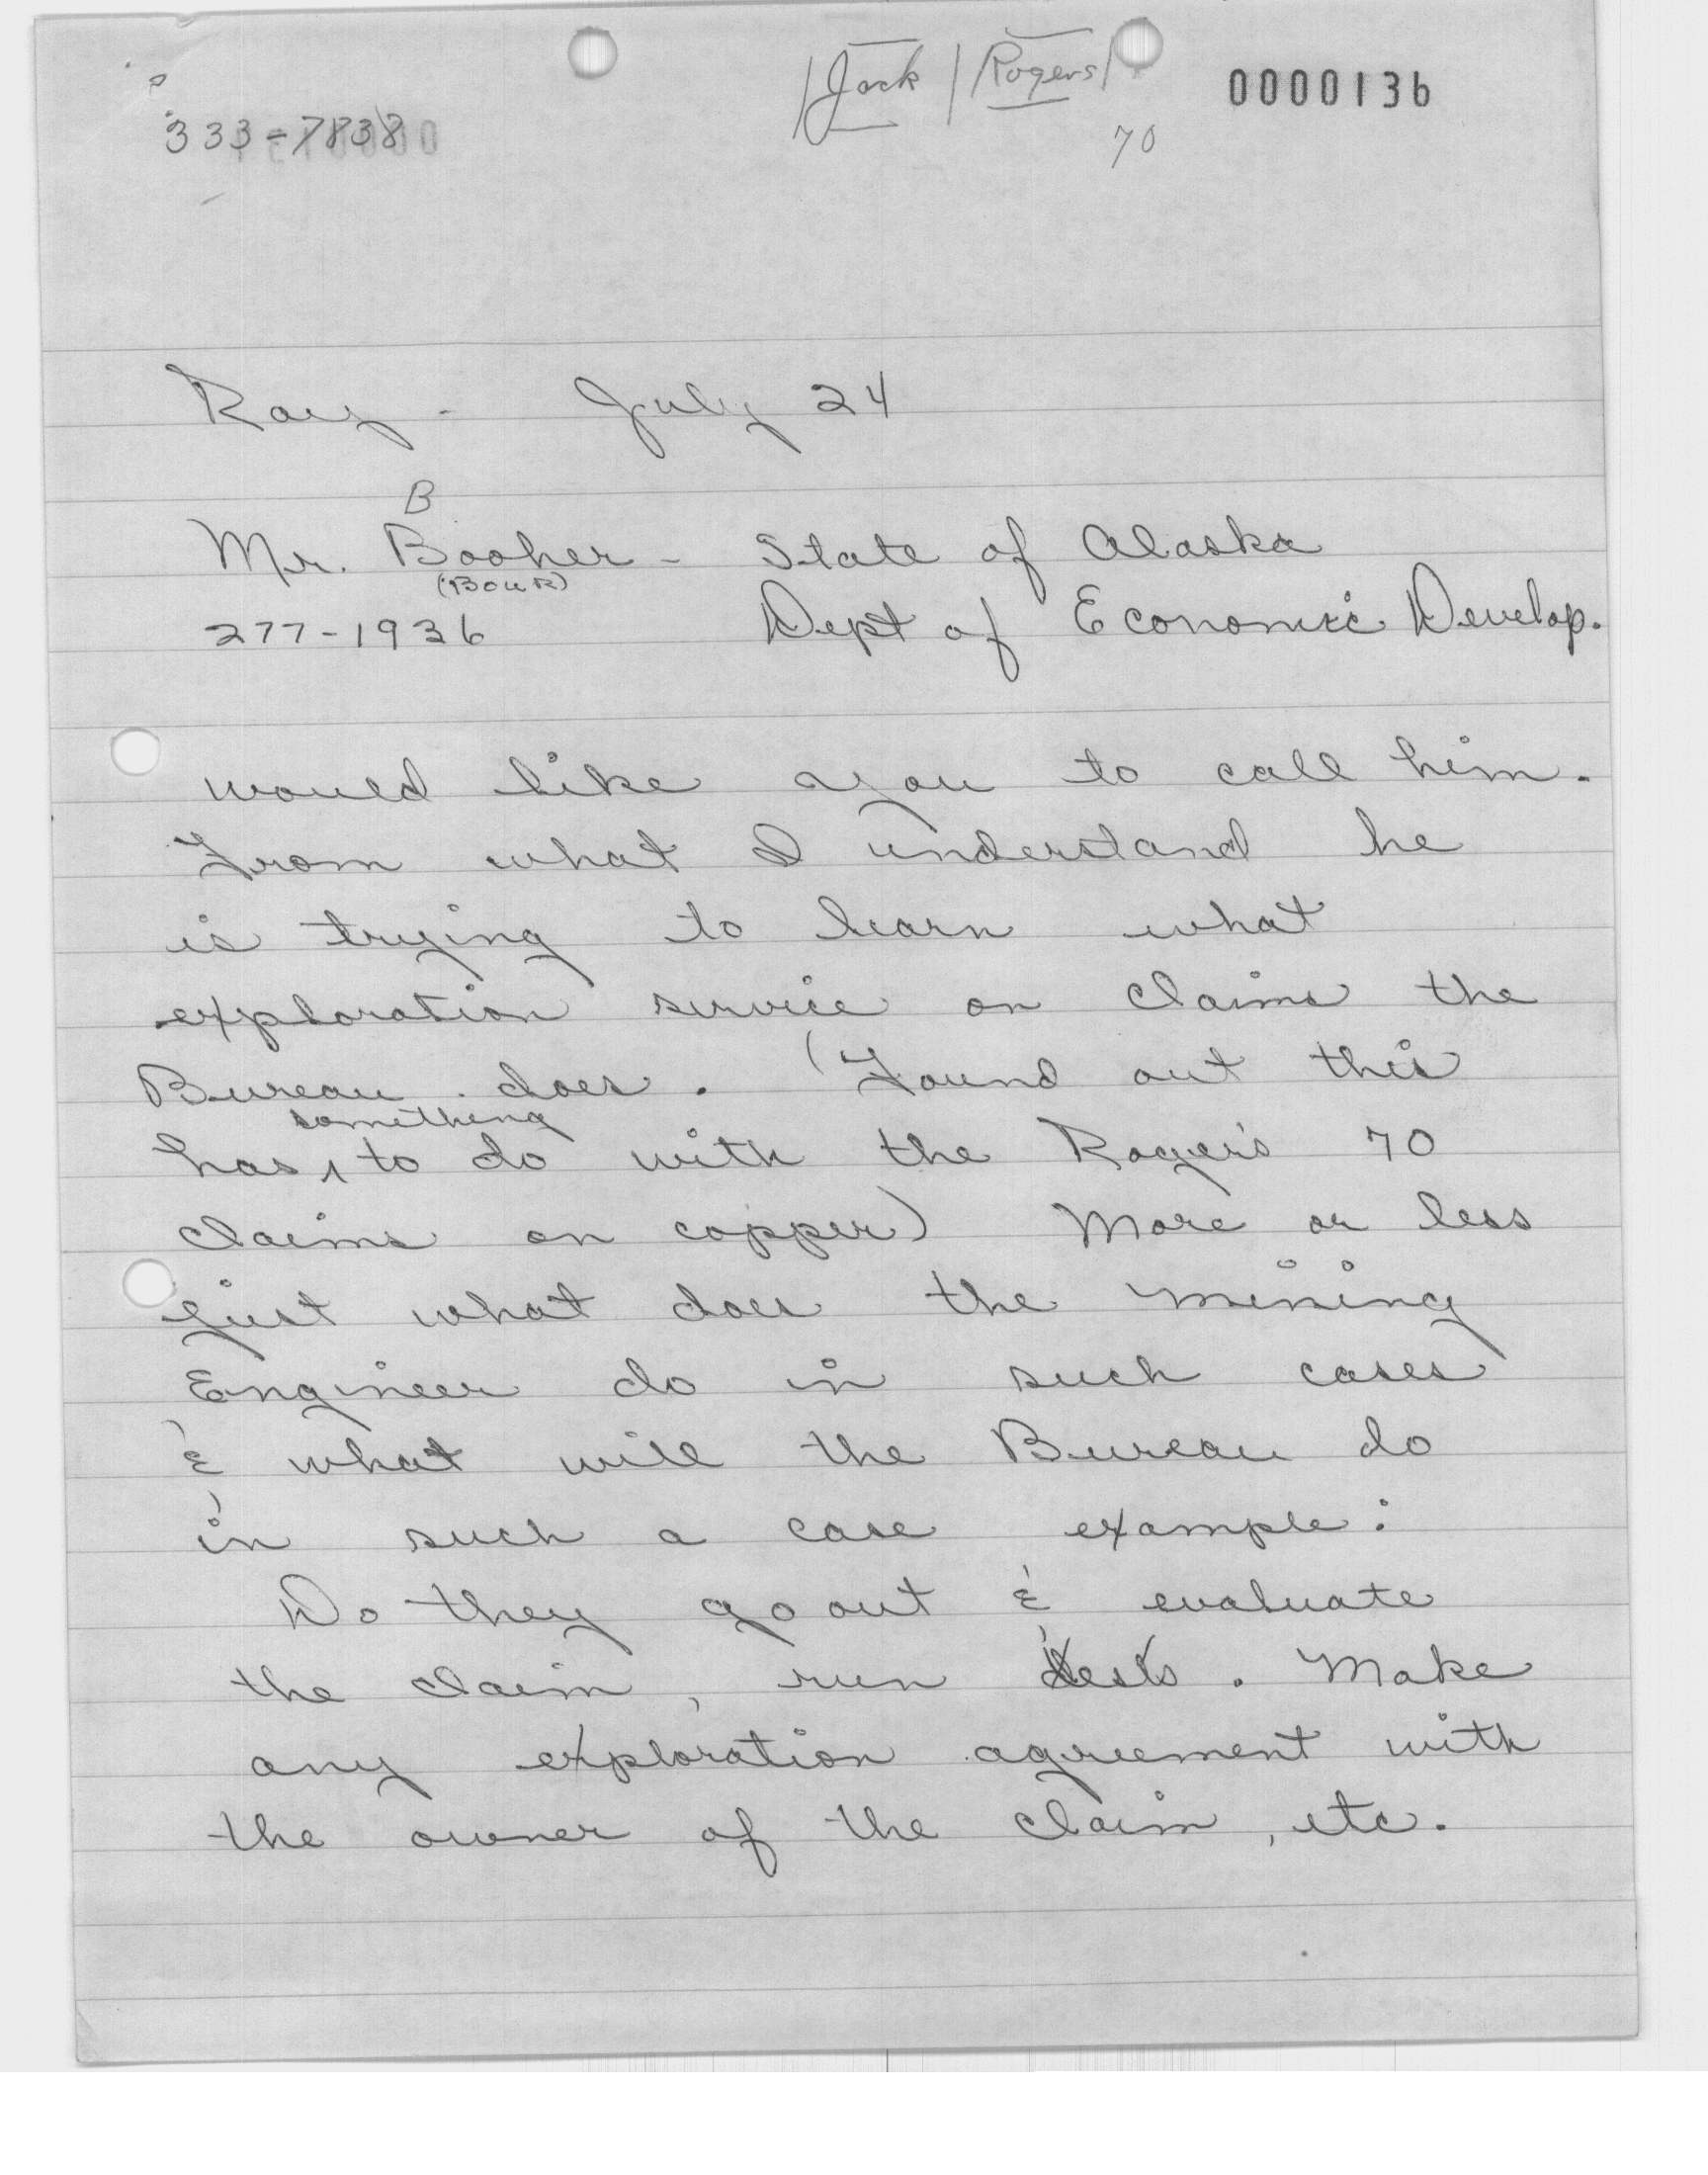 Jack Rogers 0000136
333-7838
70
Ray - July 24
B
Mr. Booher - State of Alaska
(Bour)
277-1936 Dept of Economic Develop.
would like you to call him.
From what I understand he
is trying to learn what
exploration service on claims the
Bureau does. (Found out this
something
has ^ to do with the Roger's 70
claims on copper) More or less
just what does the mining
Engineer do in such cases
& what will the Bureau do
in such a case example:
Do they go out & evaluate
the claim, run tests. Make
any exploration agreement with
the owner of the claim, etc.